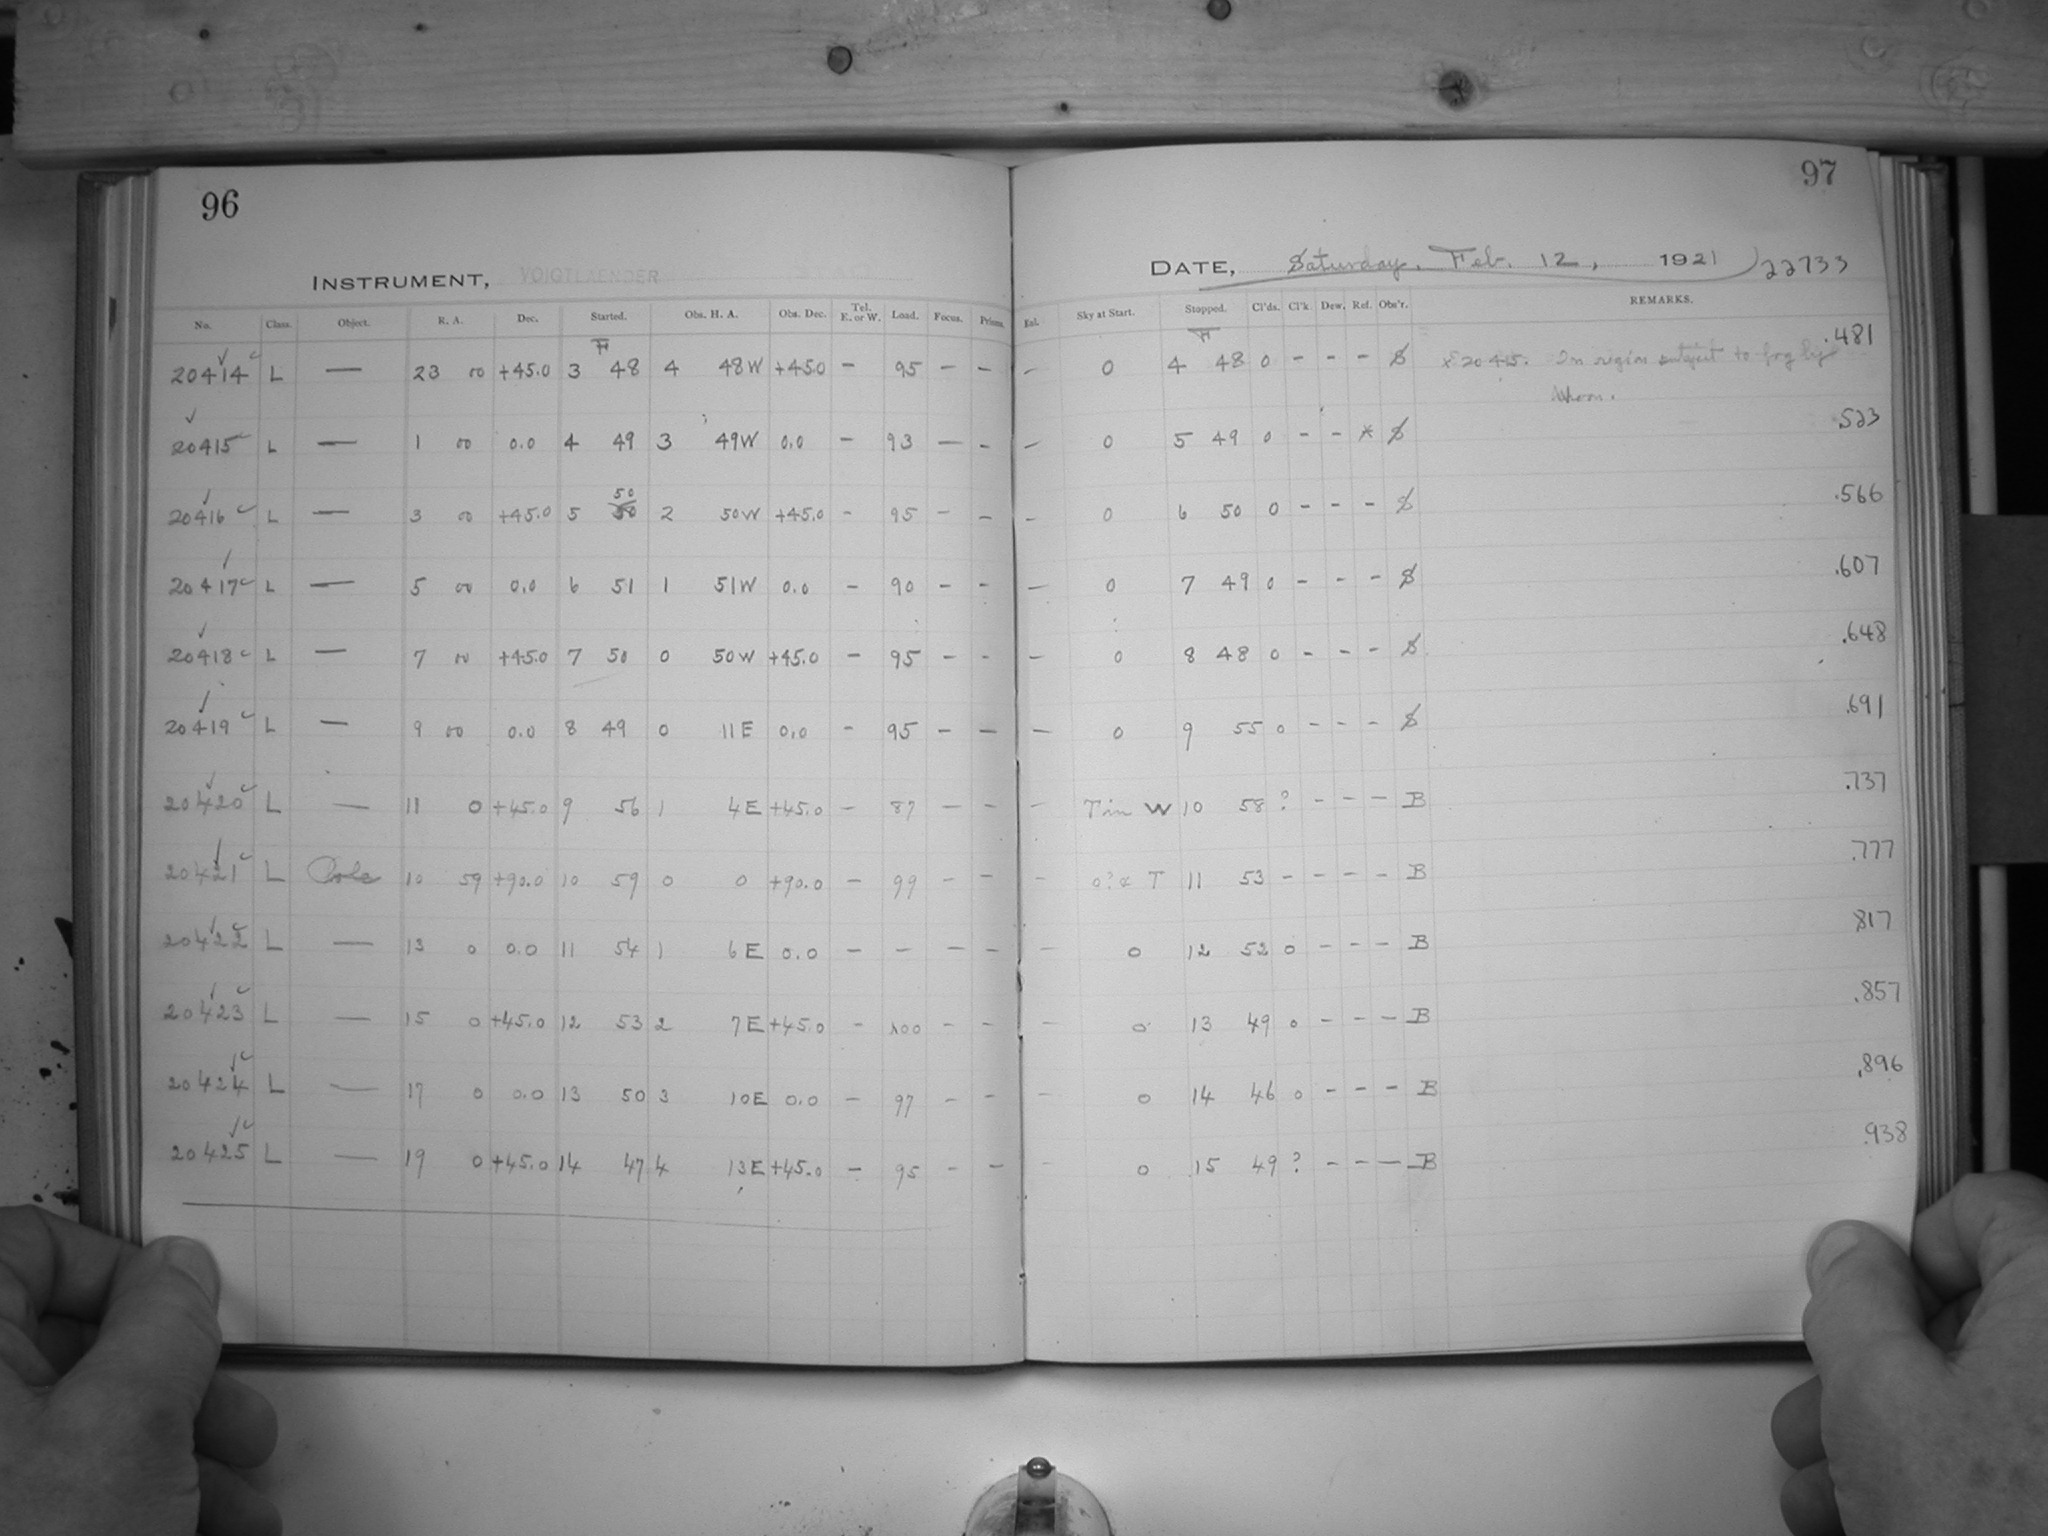 96
INSTRUMENT, VOIGTLAENDER
No. Class. Object. R. A. Dec. Started. Obs. H. A. Obs. Dec. Tel. E. or W. Load. Focus. Prisms.
20414 L — 23 00 +45.0 3 48 4 48W +45.0 – 95 – –
20415 L — 1 00 0.0 4 49 3 49W 0.0 – 93 — –
50
20416 L — 3 00 +45.0 5 50 2 50W +45.0 – 95 – –
20417 L — 5 00 0.0 6 51 1 51W 0.0 – 90 – –
20418 L — 7 00 +45.0 7 50 0 50W +45.0 – 95 – –
20419 L — 9 00 0.0 8 49 0 11E 0.0 – 95 – –
20420 L — 11 0 +45.0 9 56 1 4E +45.0 – 87 – –
20421 L Pole 10 59 +90.0 10 59 0 0 +90.0 – 99 – –
20422 L — 13 0 0.0 11 54 1 6E 0.0 – – – –
20423 L — 15 0 +45.0 12 53 2 7E +45.0 – 100 – –
20424 L — 17 0 0.0 13 50 3 10E 0.0 – 97 – –
20425 L — 19 0 +45.0 14 47 4 13E +45.0 – 95 – –
97
DATE, Saturday, Feb. 12, 1921 22733
Exl. Sky at Start. Stopped. Cl'ds. Cl'k. Dew. Ref. Obs'r. REMARKS.
– 0 4 48 0 – – – S * 20415. In region subject to fog by .481
Moon.
– 0 5 49 0 – – * S .523
– 0 6 50 0 – – – S .566
– 0 7 49 0 – – – S .607
– 0 8 48 0 – – – S .648
– 0 9 55 0 – – – S .691
– T in W 10 58 ? – – – B .737
– 0? & T 11 53 – – – – B .777
– 0 12 52 0 – – – B .817
– 0 13 49 0 – – – B .857
– 0 14 46 0 – – – B .896
– 0 15 49 ? – – – B .938